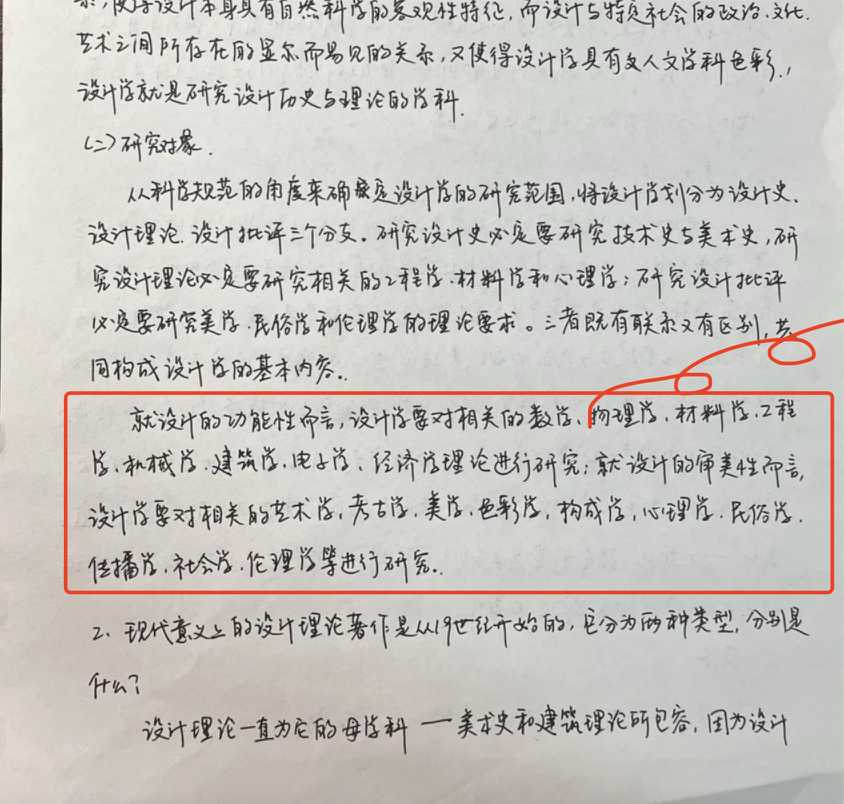 使得设计本身具有自然科学的客观性特征,而设计与特定社会的政治、文化、
艺术之间所存在的显尔而易见的关系,又使得设计学具有文人文学科色彩.,
设计学就是研究设计历史与理论的学科.
(二)研究对象.
从科学规范的角度来确定设计学的研究范围,将设计学划分为设计史、
设计理论、设计批评三个分支。研究设计史必定要研究技术史与美术史,研
究设计理论必定要研究相关的工程学、材料学和心理学;研究设计批评
必定要研究美学、民俗学和伦理学的理论要求。三者既有联系又有区别,共
同构成设计学的基本内容..
就设计的功能性而言,设计学要对相关的数学、物理学、材料学、工程
学、机械学、建筑学、电子学、经济学理论进行研究;就设计的审美性而言,
设计学要对相关的艺术学,考古学、美学、色彩学,构成学,心理学、民俗学、
传播学,社会学、伦理学等进行研究..
2、现代意义上的设计理论著作是从19世纪开始的,它分为两种类型,分别是
什么?
设计理论一直为它的母学科 — 美术史和建筑理论所包容,因为设计